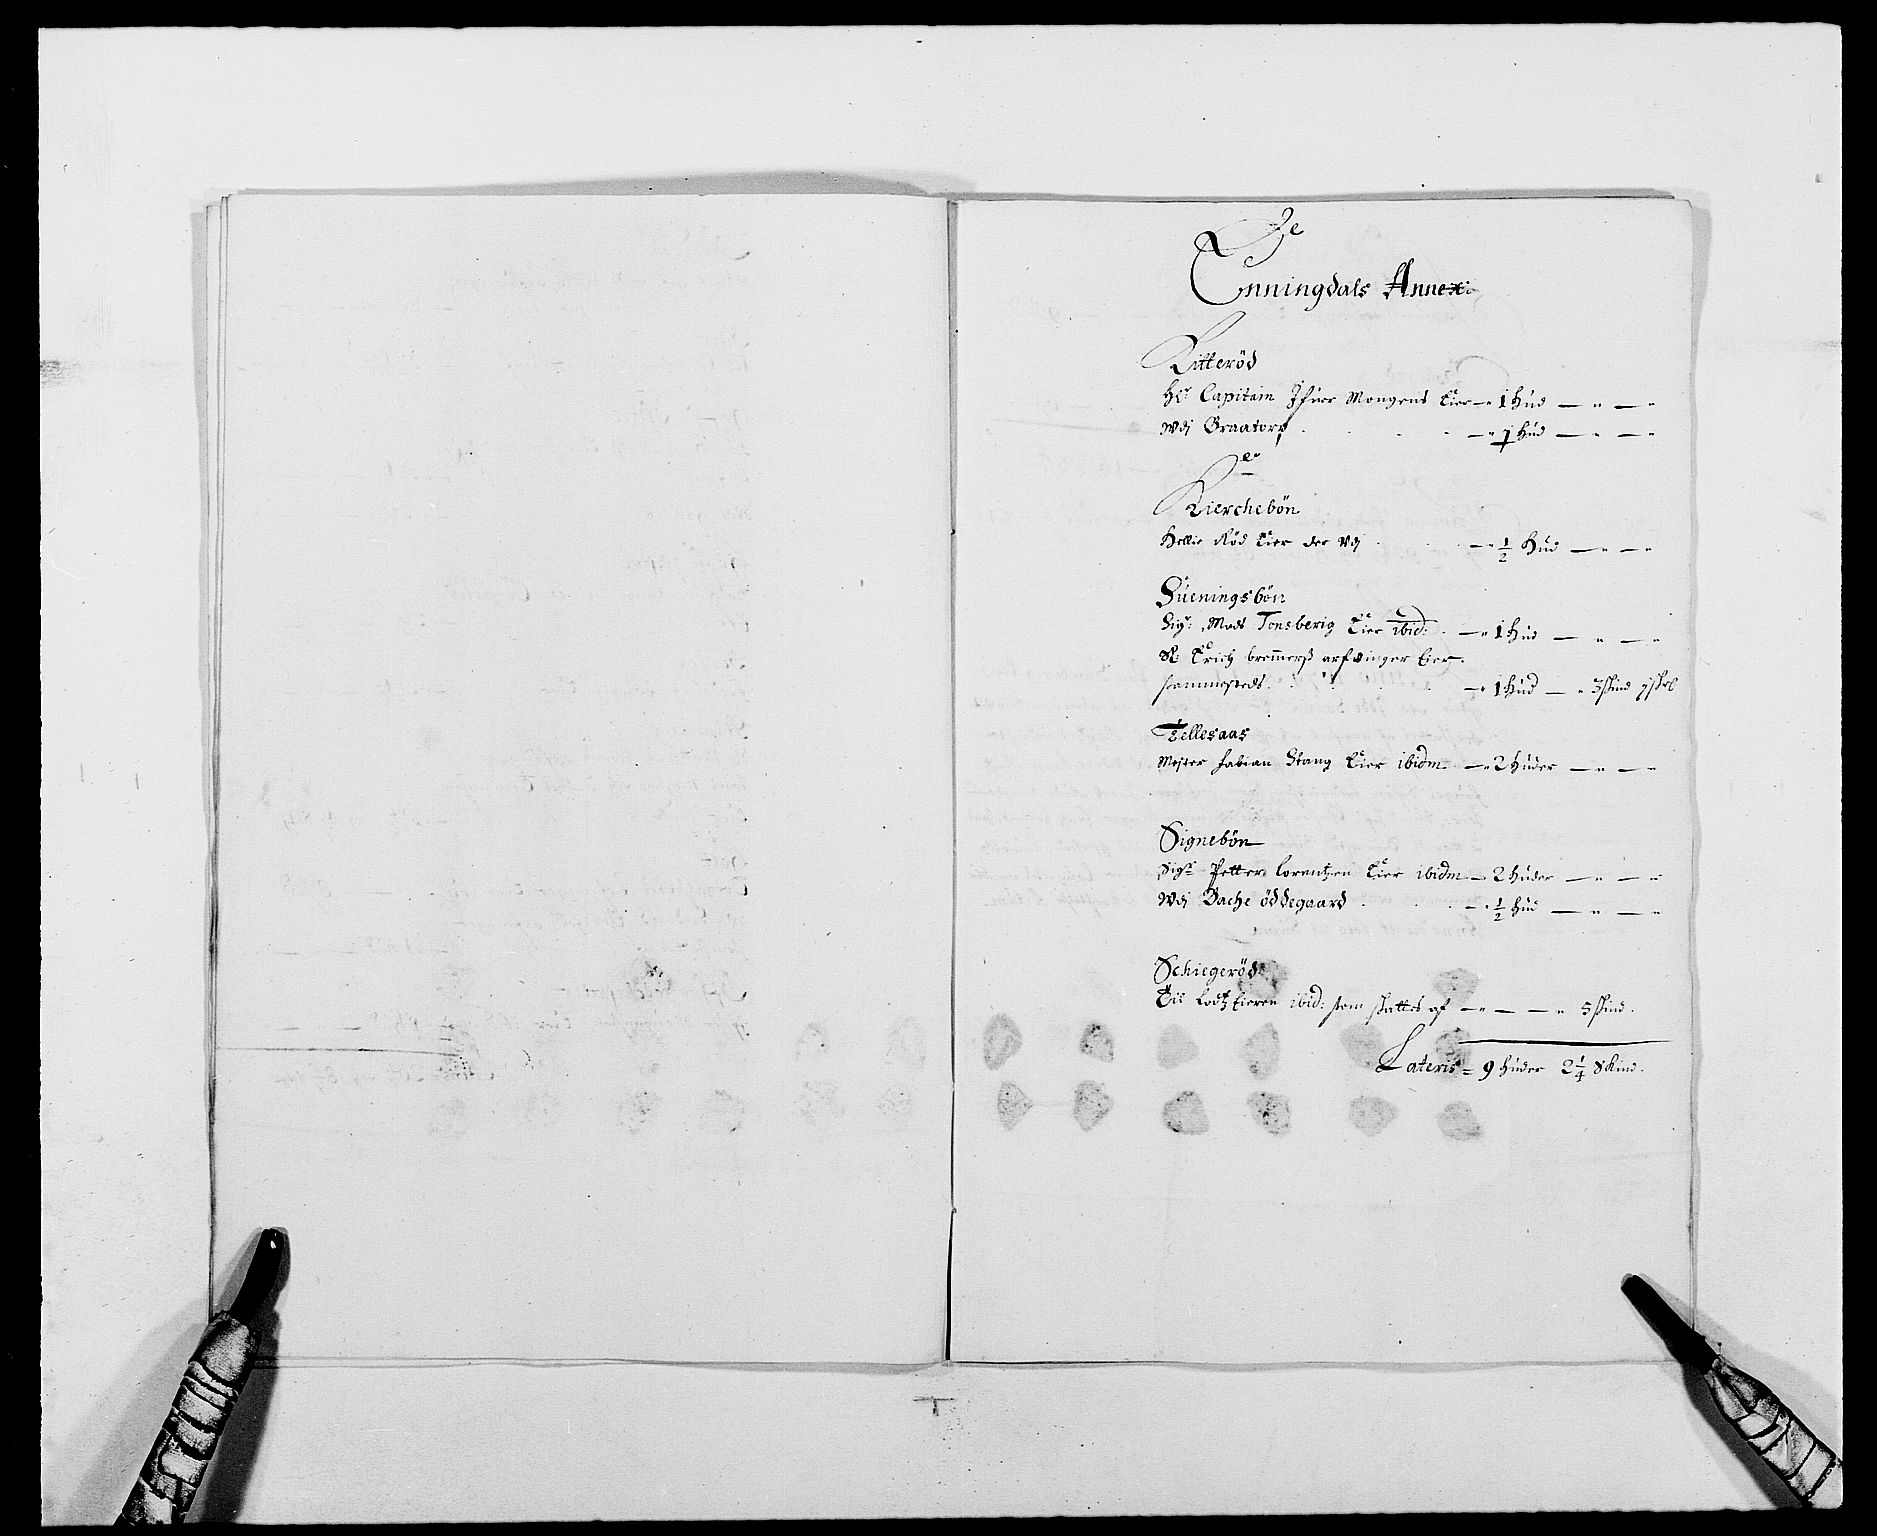 Enningdals Annex
Kitterød
Hr: Capitain Ifuer Mongens Eier 1 Hud
Udj Graatorp 1 Hud
Kierchebøn
Hellie Rød Eier der Udj ½ Hud
Sueningsbøn
Sigr: Mads Tonsberig Eier ibid: 1 Hud
Sl: Erich bremerss arfvinger Eier
sammesteds 1 Hud 3 skind
Tellesaas
Mester Fabian Stang Eier ibidm 2 Huder
Signebøn
Sigr Petter Lorentzen Eier ibidm 2 Huder
Udj Bache øddegaard ½ Hud
Schiegerød
Til Lodtz Eieren ibid: som skattes af 5 skind.
Lateris = 9 Huder 2 ¼ Skind.